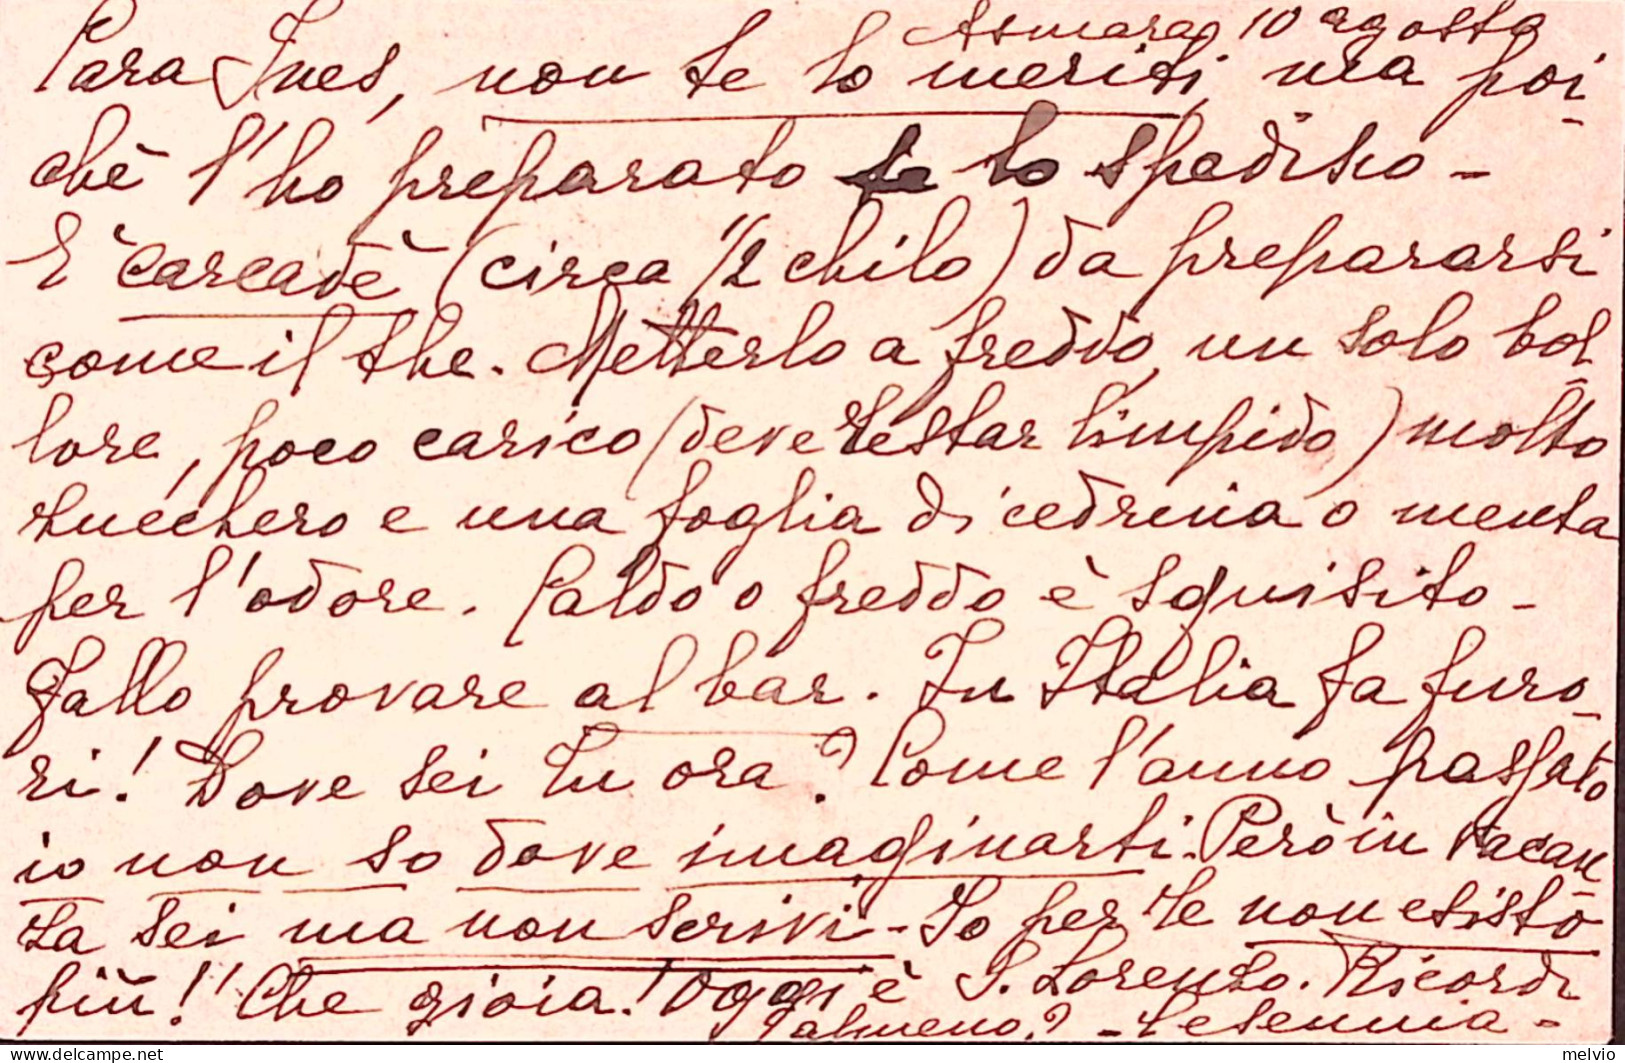 Asmara 10 agosto
Cara Ines, non te lo meriti, ma poi-
chè l'ho preparato te lo spedisco -
È carcadè (circa 1/2 chilo) da prepararsi
come il the. Metterlo a freddo, un solo bol-
lore, poco carico (deve restar limpido) molto
zucchero e una foglia di cedrina o menta
per l'odore. Caldo o freddo è squisito -
Fallo provare al bar. In Italia fa furo-
ri! Dove sei tu ora? Come l'anno passato
io non so dove imaginarti. Però in vacan-
za sei ma non scrivi - Io per te non esisto
più! Che gioia! Oggi è S. Lorenzo. Ricordi
almeno? -
melvio